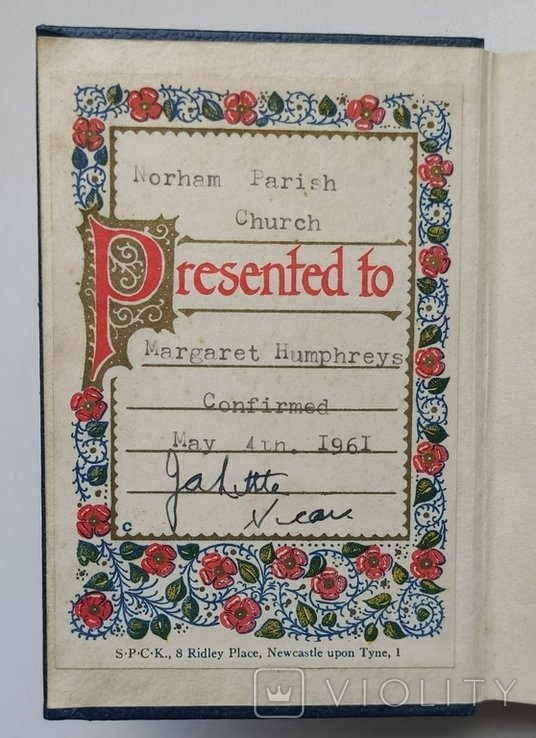 Norham Parish
Church
Presented to
Margaret Humphreys
Confirmed
May 4th. 1961
Vicar
C
S·P·C·K., 8 Ridley Place, Newcastle upon Tyne, 1
VIOLITY